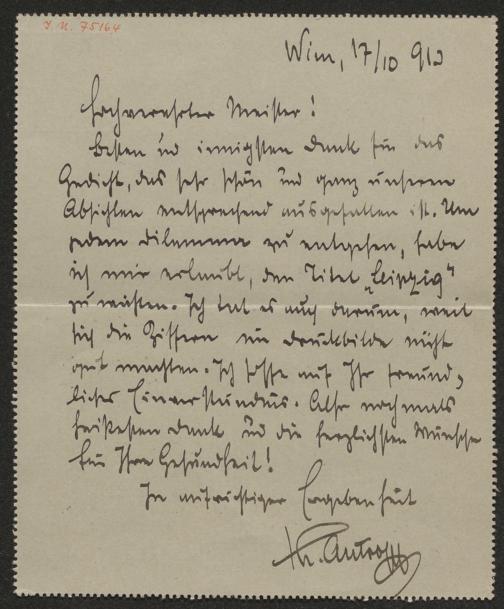 J. N. 75164
Wien, 17/10 913
Hochverehrter Meister!
Besten und innigsten Dank für das
Gedicht, das sehr schön und ganz unseren
Absichten entsprechend ausgefallen ist. Um
jedem Dilemma zu entgehen, habe
ich mir erlaubt, den Titel „Leipzig"
zu wählen. Ich tat es auch darum, weil
sich die Ziffern im Druckbilde nicht
gut machten. Ich hoffe auf Ihr freund-
liches Einverständnis. Also nochmals
heißesten Dank und die herzlichsten Wünsche
für Ihre Gesundheit!
In aufrichtiger Ergebenheit